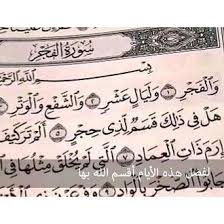 سُورَةُ الفَجْرِ
بِسْمِ اللَّهِ الرَّحْمَ
وَالْفَجْرِ ١ وَلَيَالٍ عَشْرٍ ٢ وَالشَّفْعِ وَالْوَتْرِ
هَلْ فِي ذَٰلِكَ قَسَمٌ لِّذِي حِجْرٍ ٥ أَلَمْ تَرَ كَيْفَ
إِرَمَ ذَاتِ الْعِمَادِ ٧ الَّتِي لَمْ يُخْلَقْ مِثْلُهَا فِي
لفضل هذه الأيام أقسم الله بها
جَابُوا الصَّخْرَ بِالْوَادِ ٩ وَفِرْعَوْنَ